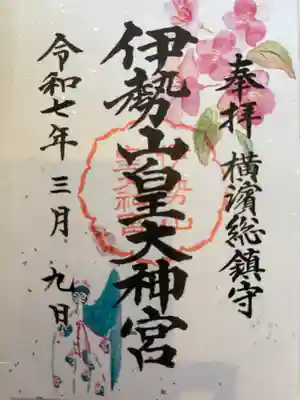 奉拝 横濱総鎮守
伊勢山皇大神宮
令和七年三月 九日